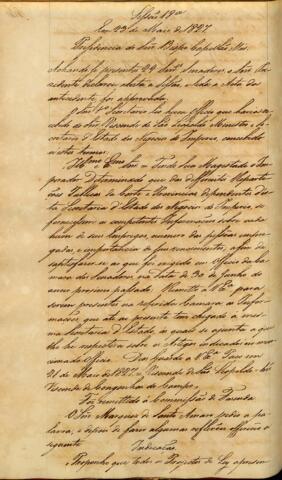 Sessão 19ª
Em 23 de Maio de 1827
Presidencia do Senr. Bispo Capellão Mór
Achando-se presentes 29 Senrs. Senadores o Senr. Pre-
sidente declarou aberta a Sessão, e lida a Acta da
antecedente foi approvada.
O Senr. 1º Secretario leo hum Officio que havia re-
cebido do Snr. Visconde de São Leopoldo Ministro e Se-
cretario d'Estado dos Negocios do Imperio, concebido
nestes termos:
Illmo. e Exmo. Senr. Tendo Sua Magestade o Impe-
rador Determinado que das differentes Reparti-
ções Publicas da Corte e Provincias dependentes des-
ta Secretaria d'Estado dos Negocios do Imperio, se
fornecessem as competentes informações sobre cada
hum de seus Empregos, numero das pessoas empre-
gadas, e importancia de seus vencimentos, afim de
satisfazer-se ao que foi exigido em Officio da Ca-
mara dos Senadores, na data de 30 de Junho do
anno proximo passado: Remetto a V. Exa. para
serem presentes na referida Camara as Infor-
mações que até ao presente tem chegado á mes-
ma Secretaria d'Estado, ás quaes se ajunta a que
lhe he respectiva sobre os Artigos indicados no men-
cionado Officio. Deos Guarde a V. Exa. Paço em
21 de Maio de 1827. Visconde de São Leopoldo. Snr.
Visconde de Congonhas do Campo.
Foi remettido á Commissão de Fazenda
O Senr. Marquez de Santo Amaro pedio a pa-
lavra, e depois de fazer algumas reflexões offereceo a
seguinte
Indicação
Proponho que todos os Projectos de Ley apresen-